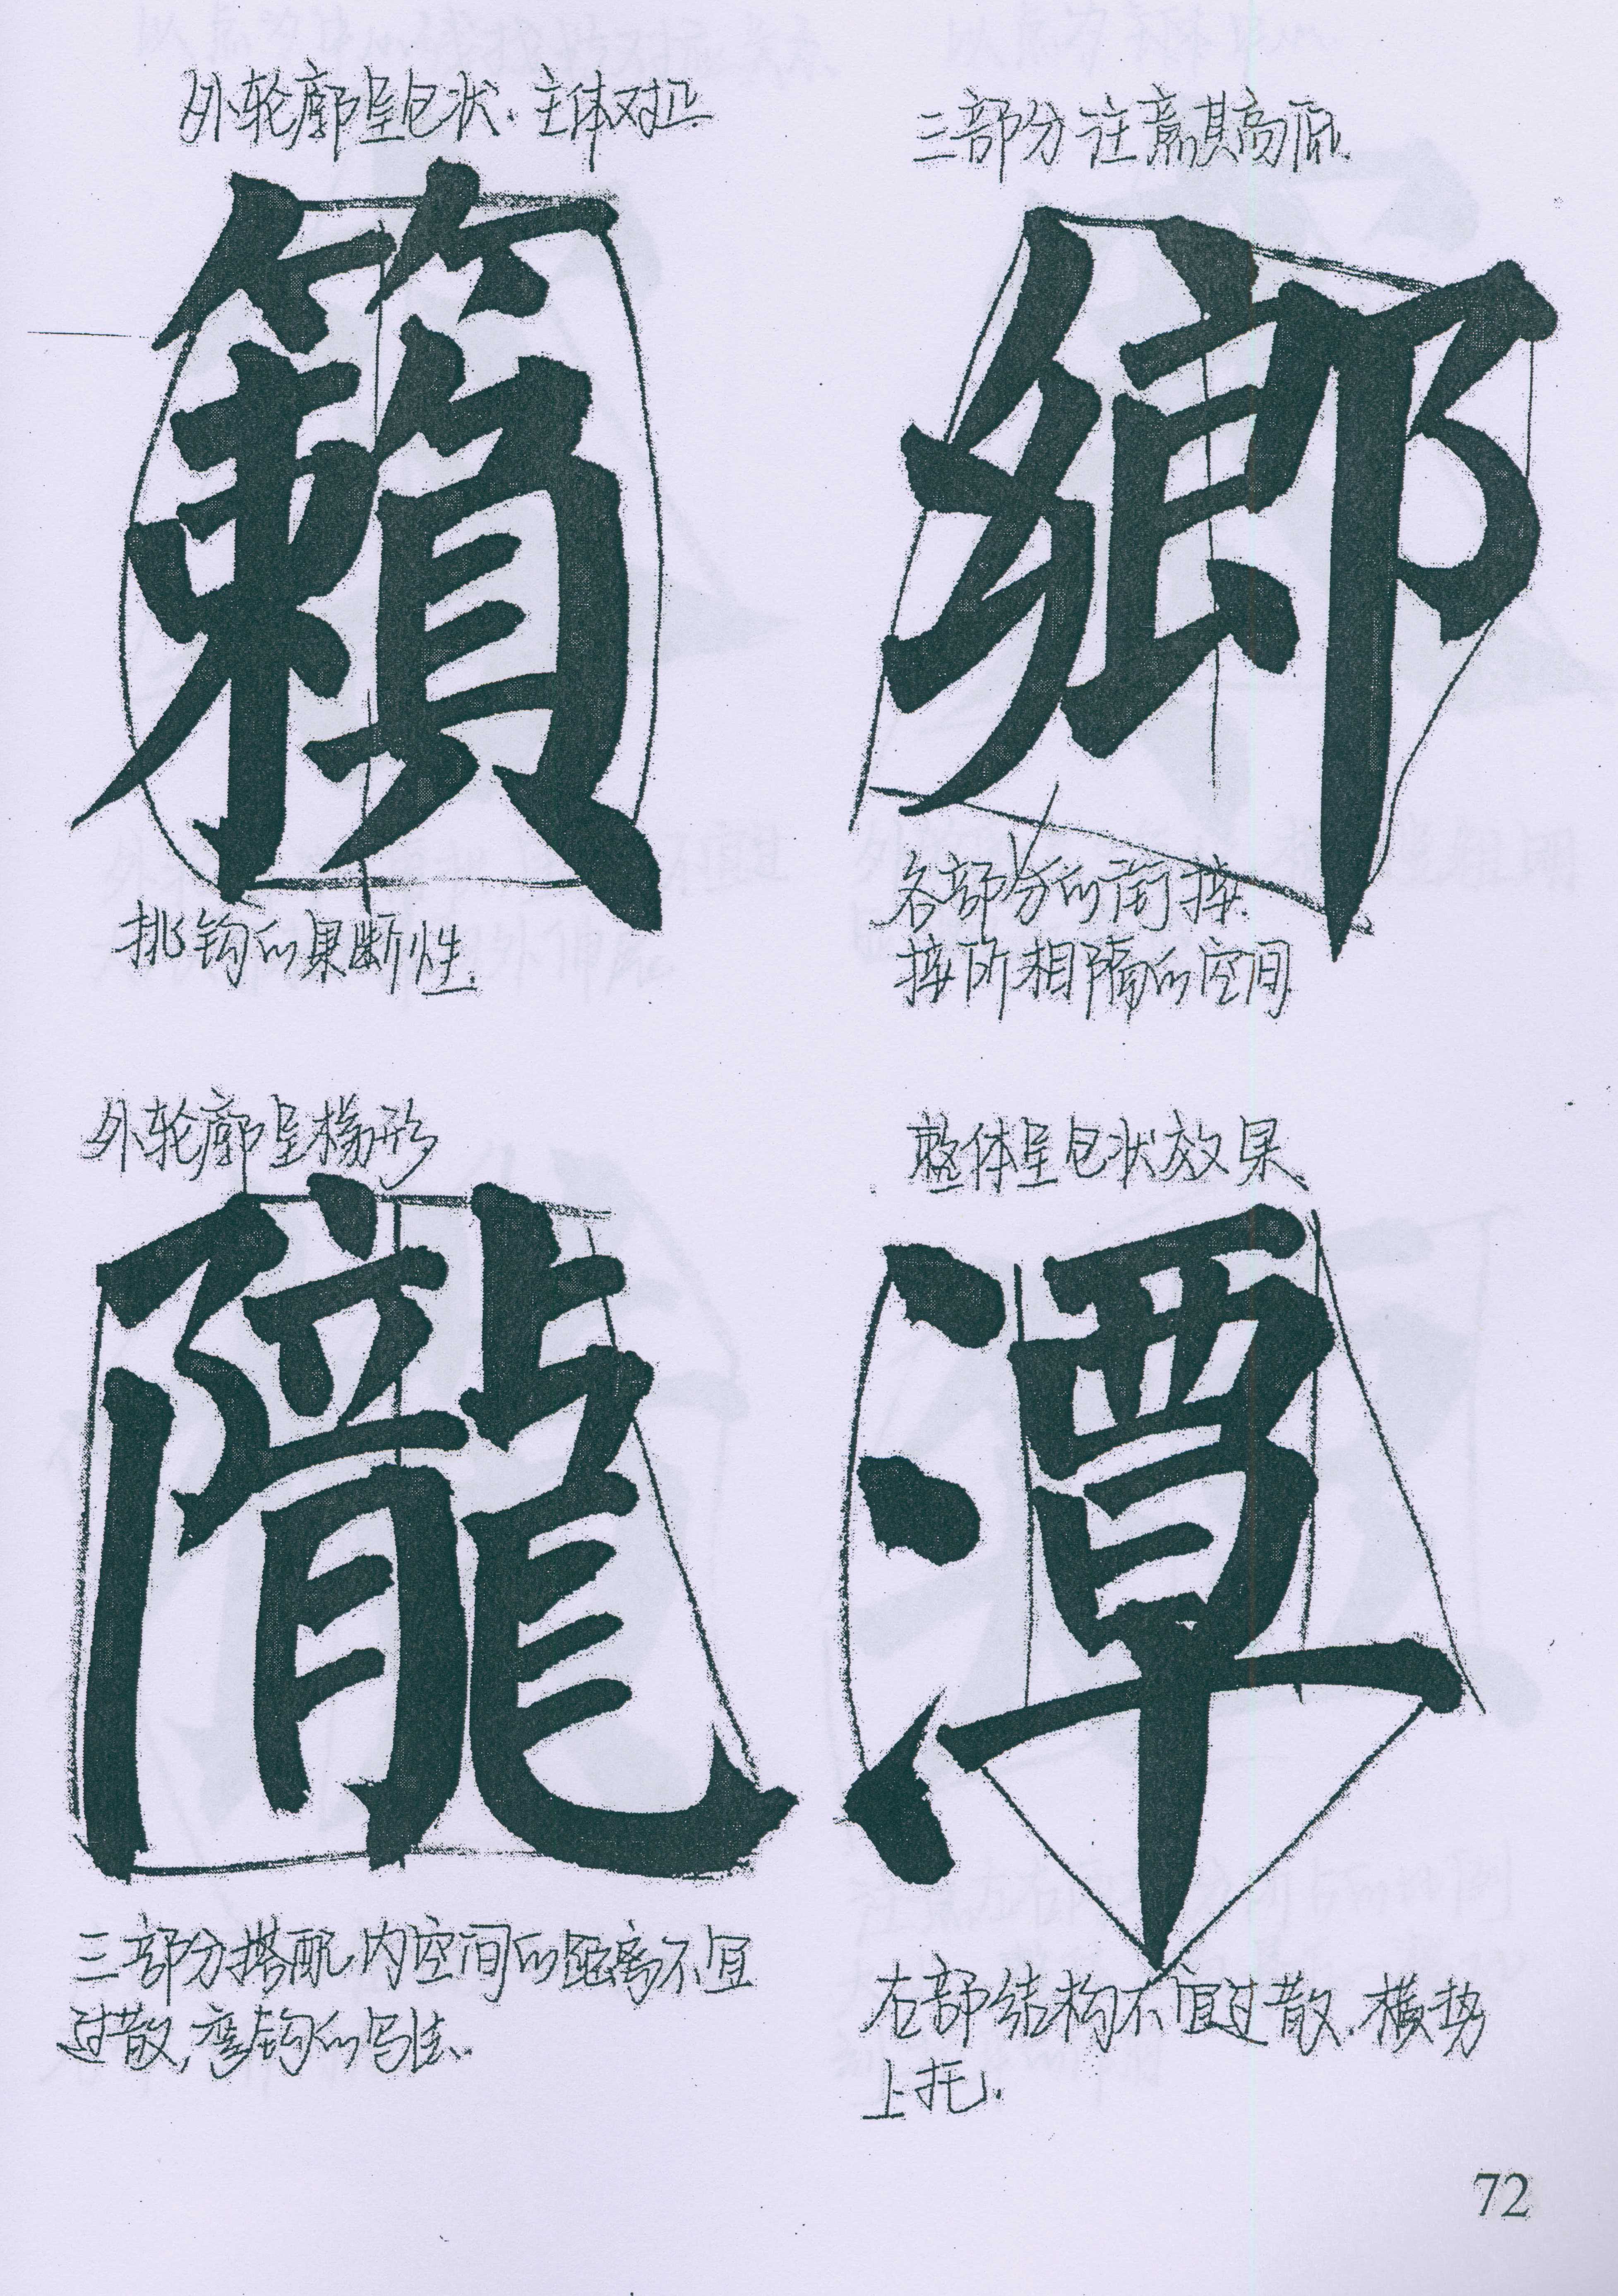 外轮廓呈包状.主体对正.
籟
挑钩的果断性.
三部分注意其高底.
鄉
各部分的衔接.
接所相隔的空间.
外轮廓呈梯形
隴
三部分搭配,内空间的距离不宜
过散,弯钩的写法.
整体呈包状效果.
潭
右部结构不宜过散.横势
上托.
72